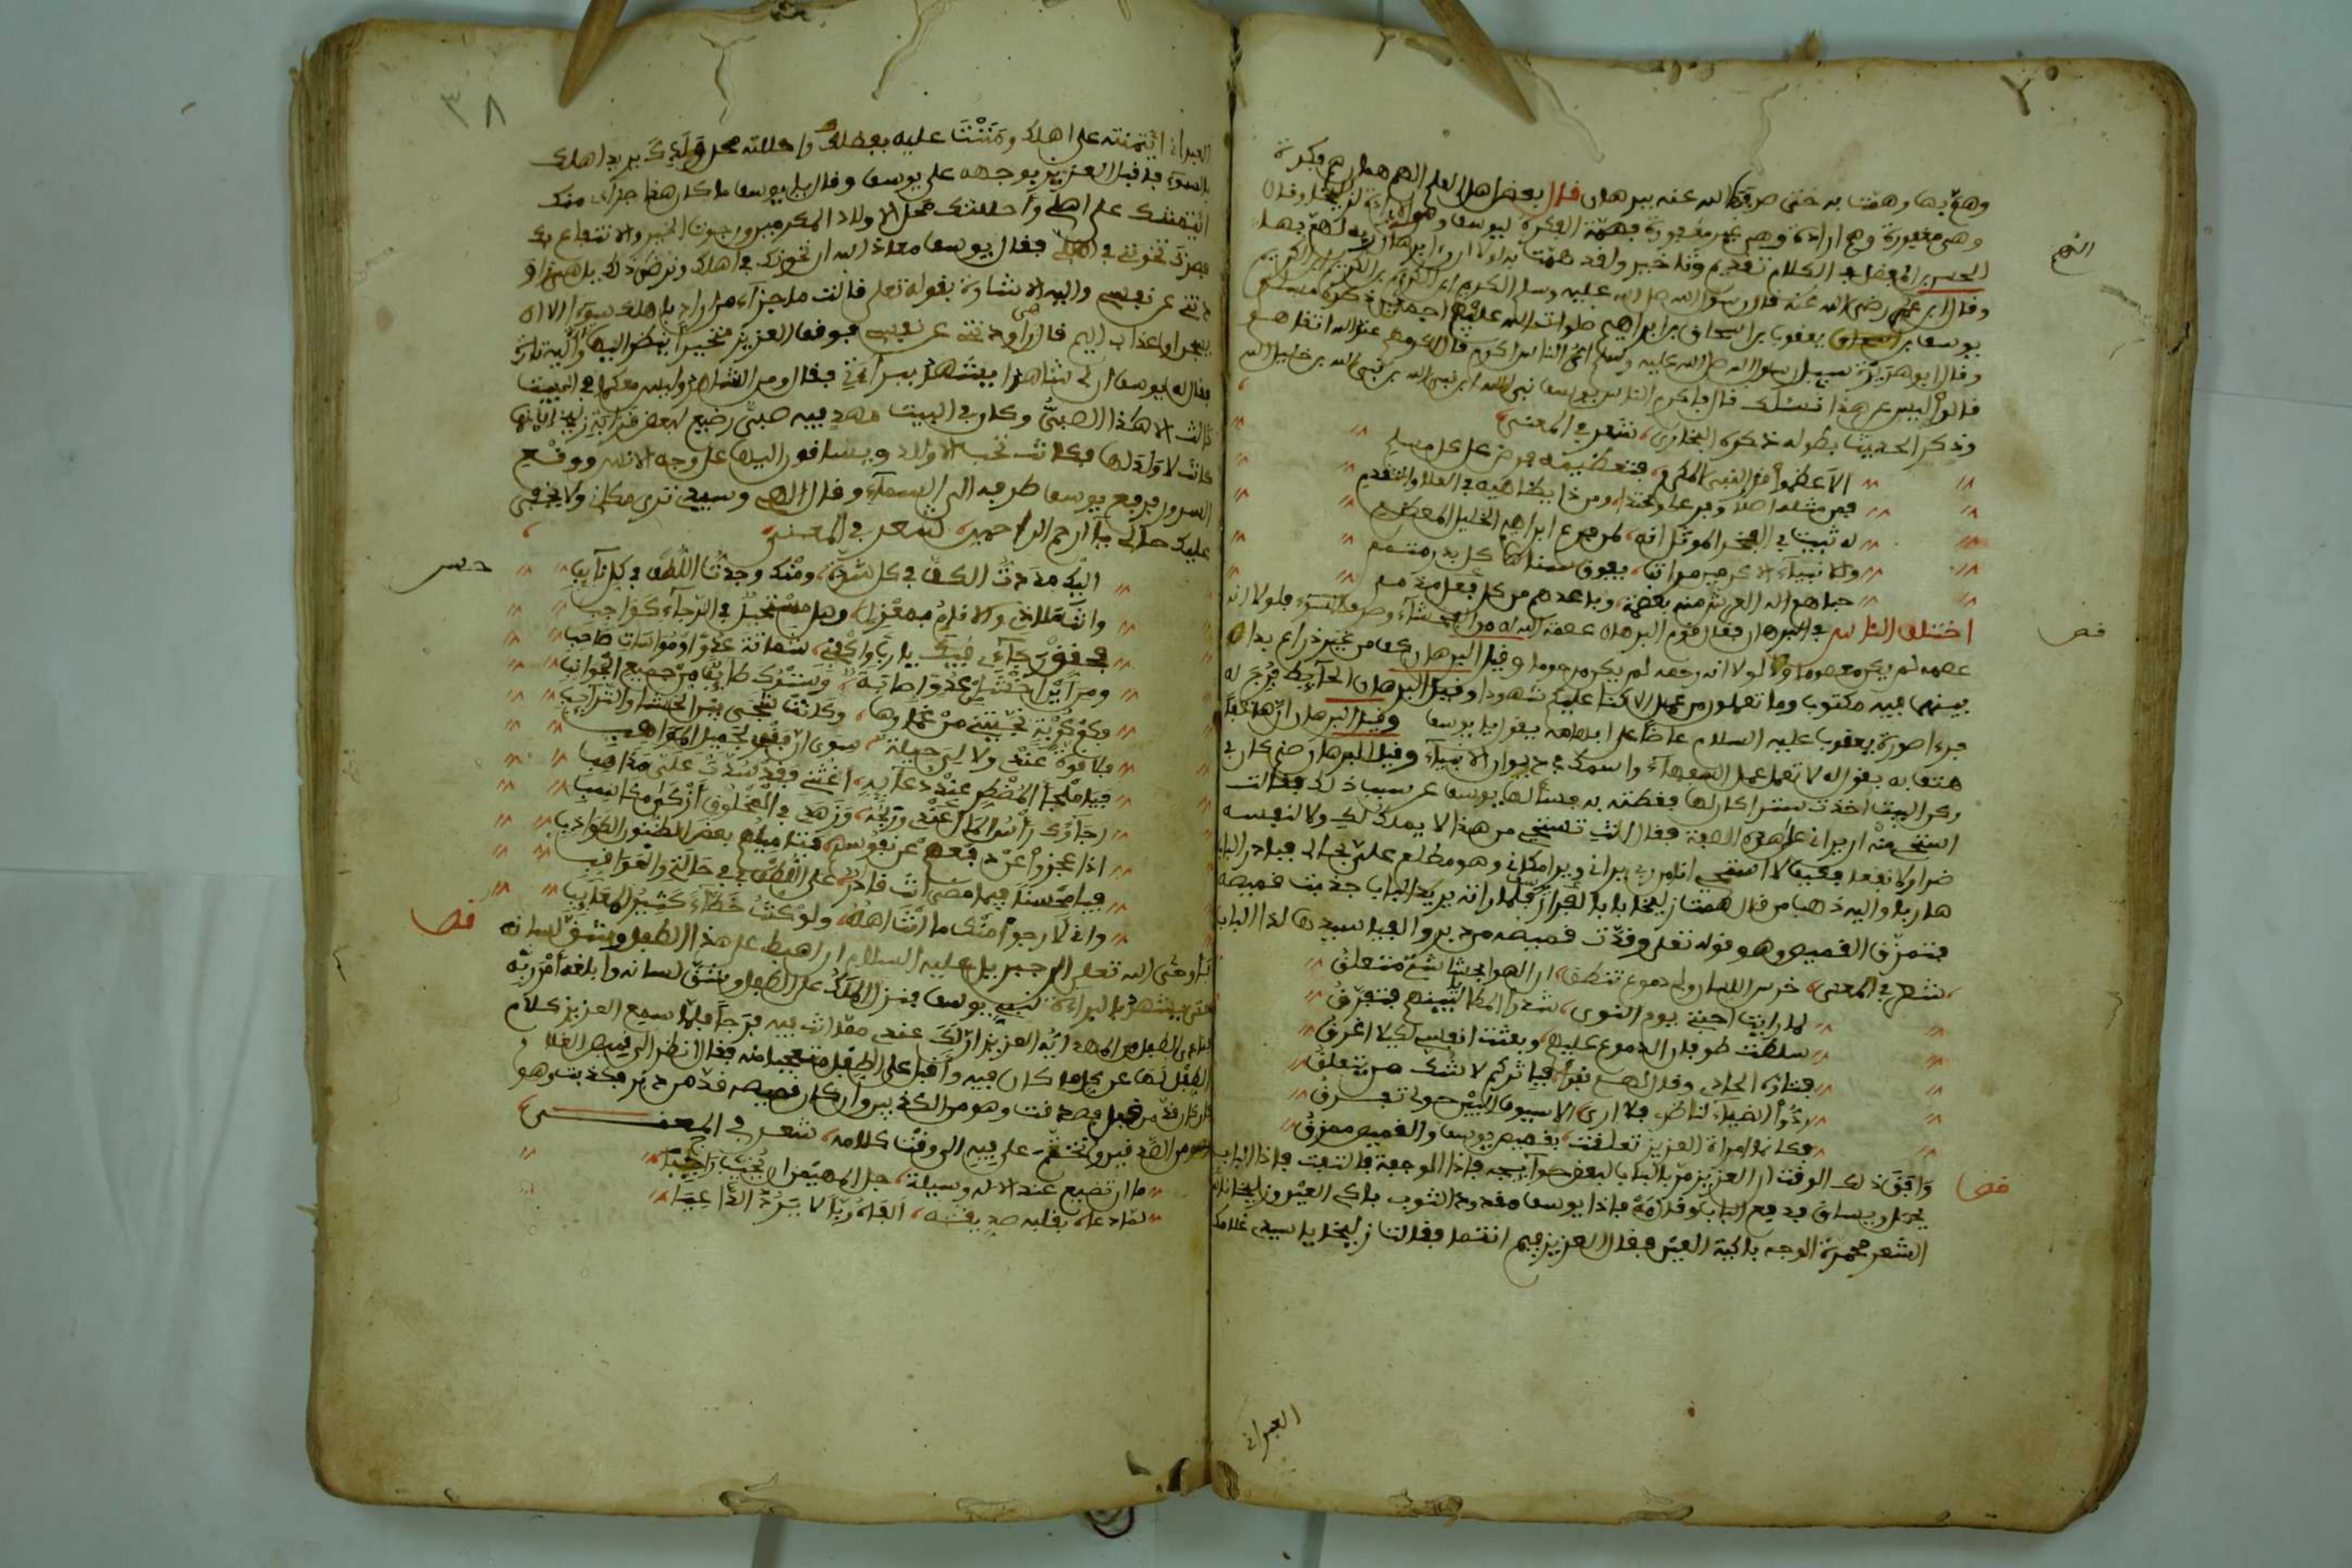 وهم بها وهمت به حتى صرفها الله عنه ببرهان قال بعض اهل العلم الهم همان هم فكرة
وهى مغفورة وهم ارادة وهى غير مغفورة فهمة الفكرة ليوسف وهم الارادة لزليخا وقال
الحسن بن الفضل في الكلام تقديم وتاخير ولقد همت به لولا ان رءا برهان ربه لهم بها
وقال ابن عمر رضي الله عنه قال رسول الله صلى الله عليه وسلم الكريم ابن الكريم بن الكريم بن الكريم
يوسف بن يعقوب بن اسحاق بن ابراهيم صلوات الله عليهم اجمعين ذكره مسلم
وقال ابو هريرة سئل رسول الله صلى الله عليه وسلم اي الناس اكرم قال اكرمهم عند الله اتقاهم
قالوا ليس عن هذا نسئلك قال فاكرم الناس يوسف نبي الله ابن نبي الله بن نبي الله بن خليل الله
وذكر الحديث بطوله ذكره البخاري شعر في المعنى
الا عظموا قدر النبي المكرم فتعظيمه فرض على كل مسلم
فمن مثله اصلا وفرعا ومحتدا ومن ذا يضاهيه في العلا والتقدم
له ثبت في الفخر الموثل انه لمن فرع ابراهيم الخليل المعظم
والانبياء الاكرمين مراتب يفوق سناها كل بدر متمم
حباهم اله العرش منه بعصمة وباعدهم من كل فعل مذمم
اختلف الناس في البرهان فقال قوم البرهان عصمة الله له من الفحشاء وصرف السوء فلولا انه
عصمه لم يكن معصوما ولولا انه رحمه لم يكن مرحوما وقيل البرهان كف من غير ذراع بدا
بينهما فيه مكتوب وما تعملون من عمل الا كنا عليكم شهودا وقيل البرهان الحائط فرج له
فرءا صورة يعقوب عليه السلام عاضا على ابهامه يقول يا يوسف وقيل البرهان ان هاتفا
هتف به يقول له لا تعمل عمل السفهاء واسمك في ديوان الانبياء وقيل البرهان صنم كان في
ركن البيت اخذت سترا كان لها فغطته به فسألها يوسف عن سبب ذلك فقالت
استحي منه ان يراني على هذه الصفة فقال انت تستحي من هذا لا يملك لك ولا لنفسه
ضرا ولا نفعا فكيف لا استحي انا من ربي يراني ويرا مكاني وهو مطلع علي في حالي فبادر الباب
هاربا واليه ذهب من قال همت زليخا بابا لفرار فلما راته يريد الباب جذبت قميصه
فتمزق القميص وهو قوله تعلى وقدت قميصه من دبر والفيا سيدها لدا الباب
شعر في المعنى خرس اللسان ولي دموع تنطق ان الهوا بحشاشتي متعلق
لما رايت احبتي يوم النوى شدوا المطايا بينهم فتفرق
سلطت طوفان الدموع عليهم وبعثت انفاسي لكيلا اغرق
فنادى الحادي وقال لهم نفرا فما ثركم لا شك من يتعلق
ردوا الضياء لناظر فلا ارى الا سيوف البين حولى تفرق
فكانما امراة العزيز تعلقت بقميص يوسف والقميص ممزق
وافق ذلك الوقت ان العزيز مر بالباب لبعض حوائجه فاذا الموجعة فالتفت فاذا الباب
يحل ويساق فدفع الباب وقدمه فاذا يوسف مقدود الثوب باكي العين وزليخا ناشرة
الشعر محمرة الوجه باكية العين فقال العزيز فيم انتما فقالت زليخا يا سيدي غلامك
العبراني
العبراني ائتمنته على اهلك ومننت عليه بفضلك واحللته محل ولدك يريد اهلك
بالسوء فاقبل العزيز بوجهه على يوسف وقال يا يوسف ما كان هذا جزاى منك
ائتمنتك على اهلي واحللتك محل الاولاد المكرمين ورجوت الخير والانتفاع بك
فصرت تخونني في اهلي فقال يوسف معاذ الله ان نخونك في اهلك ونرضى ذلك بل هي راو
دتني عن نفسي واليه الاشارة بقوله تعلى قالت ما جزاء من اراد باهلك سوءا الا ان
يسجن او عذاب اليم قال هي راودتني عن نفسي فوقف العزيز متحيرا ينظر اليها واليه تارة
فقال له يوسف ان لي شاهدا يشهد ببراءتي فقال ومن الشاهد وليس معكما في البيت
ثالث الا هذا الصبي وكان في البيت مهد فيه صبي رضيع لبعض قرابة زليخا لانها
كانت لا ولد لها فكانت تحب الاولاد ويساقون اليها على وجه الانس ووقع
السرور فرفع يوسف طرفه الى السماء وقال الهي وسيدي ترى مكاني ولا يخفى
عليك حالي يا ارحم الراحمين شعر في المعنى
اليك مددت الكف في كل شدة ومنك وجدت اللطف في كل نايب
وانت ملاذي والانام بمعزل وهل مستحيل في الرجاء كواجب
فحقق رجاءي فيك يا رب واكفني شماتة عدو او مواسات صاحب
ومن اين اخشى من عدو اصابة وسترك ضاف من جميع الجوانب
فكم كربة نجيتني من غمارها وكانت شجى بين الحشا والترايب
فلا قوة عندي ولا لي حيلة سوى ان فقري لجميل المواهب
فيا ملجأ المضطر عند دعايه اغثني فقد سدت علي مذاهبي
رجاؤك راس المال عندي وربحه وزهدي في المخلوق ازكى مكاسبي
اذا عجزوا عن دفعهم عن نفوسهم فتاميلهم بعض الظنون الكواذب
فيا محسنا فيما مضى انت قادر على اللطف بي في حالتي والعواقب
واني لارجوا منك ما انت اهله ولو كنت خطاء كثير المعايب
فاوحى الله تعلى الى جبريل عليه السلام ان اهبط على هذا الطفل وشق لسانه
حتى يشهد بالبراءة لنبيي يوسف فنزل الملك على الطفل وشق لسانه وابلغه امر ربه
فنادى الطفل من المهد ايه العزيز ان لك عندي مما انت فيه فرجا فلما سمع العزيز كلام
الطفل لها عن كل ما كان فيه واقبل على الطفل متعجبا منه فقال انظر الى قميص الغلام
ان كان قد من قبل فصدقت وهو من الكذبين وان كان قميصه قد من دبر فكذبت وهو
وهو من الصدقين وختم على فيه الى وقت كلامه شعر في المعنى
ما ان تضيع عند الاله وسيلة جل المهيمن ان يخيب راجيا
لما دعاه بقلبه صديقه القاه ربا لا يرد الداعيا
٣٨
فص
فص
فص